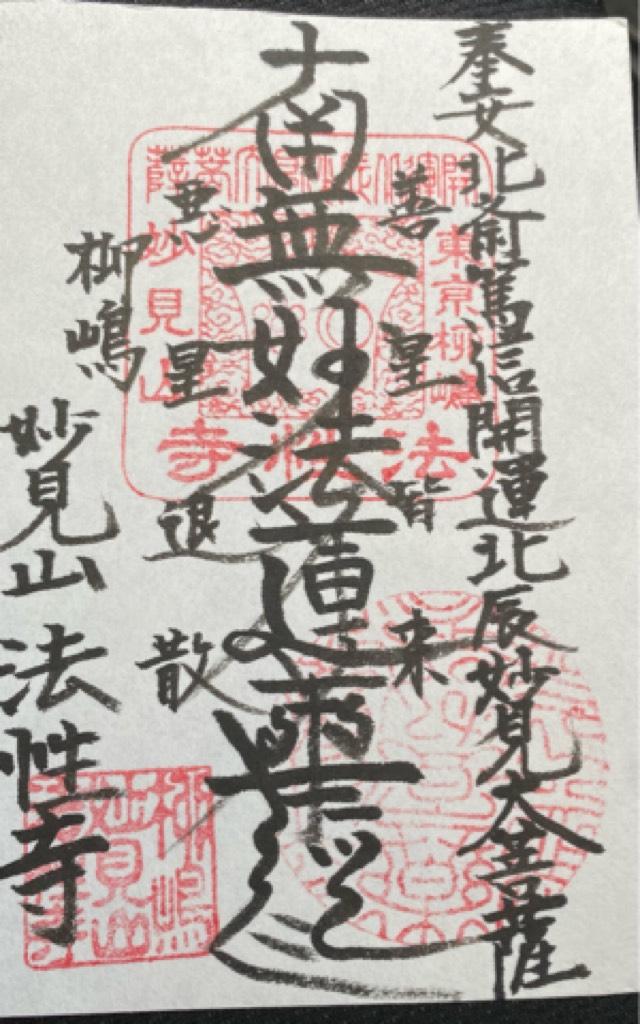 奉安北斎篤信開運北辰妙見大菩薩
善星皆来
南無妙法蓮華経
悪星退散
柳嶋
妙見山法性寺
開運北辰妙見大菩薩
東京柳嶋
妙見山
法性寺
柳嶋
妙見山
法性寺